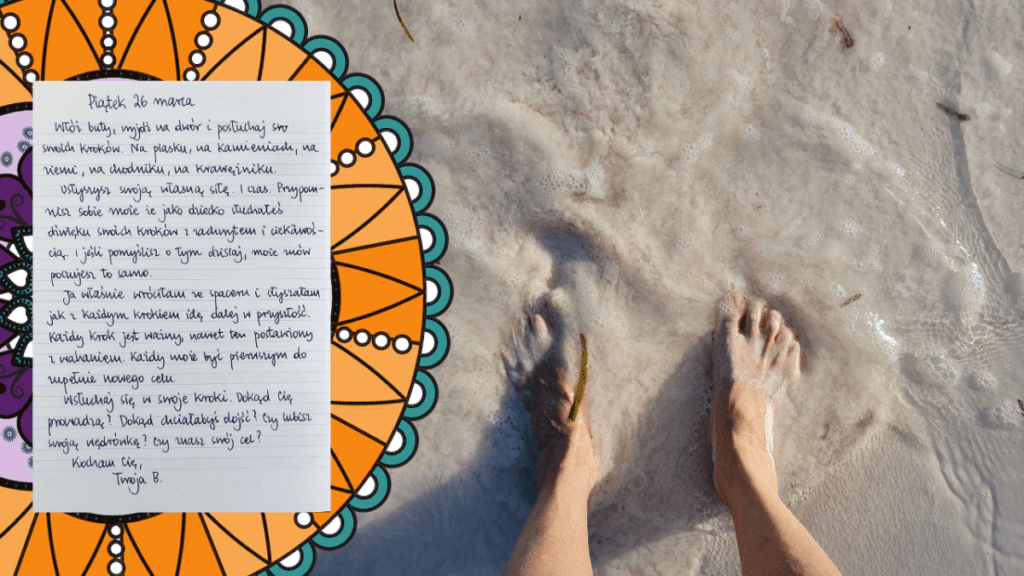 Piątek 26 marca
Włóż buty, wyjdź na dwór i posłuchaj
swoich kroków. Na piasku, na kamieniach, na
ziemi, na chodniku, na krawężniku.
Usłyszysz swoją własną siłę. I czas. Przypom-
nisz sobie może że jako dziecko słuchałeś
dźwięku swoich kroków z zachwytem i ciekawoś-
cią. I jeśli pomyślisz o tym dzisiaj, może znów
poczujesz to samo.
Ja właśnie wróciłam ze spaceru i słyszałam
jak z każdym krokiem idę dalej w przyszłość.
Każdy krok jest ważny, nawet ten postawiony
z wahaniem. Każdy może być pierwszym do
zupełnie nowego celu.
Wsłuchaj się w swoje kroki. Dokąd Cię
prowadzą? Dokąd chciałabyś dojść? Czy lubisz
swoją wędrówkę? Czy znasz swój cel?
Kocham Cię,
Twoja B.